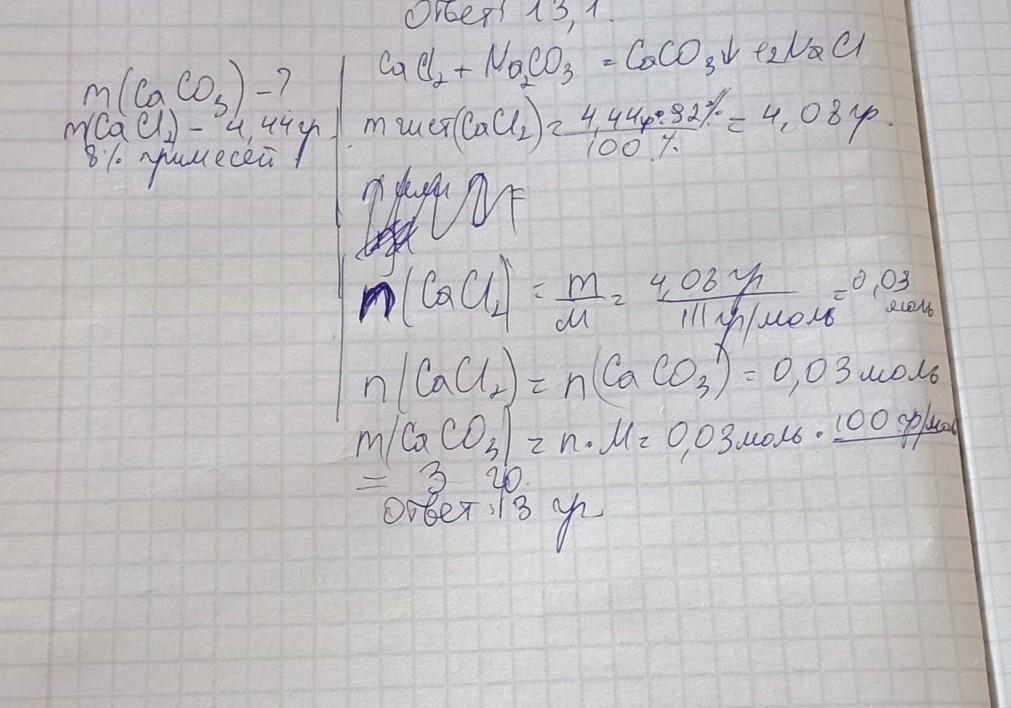 Ответ: 13,1.
m(CaCO3) - ?
m(CaCl2) - 4,44 гр
8% примесей
CaCl2 + Na2CO3 = CaCO3↓ + 2NaCl
m чист(CaCl2) = 4,44гр·92% / 100% = 4,08 гр.
n(CaCl2) = m/M = 4,08 гр / 111 гр/моль = 0,03 моль
n(CaCl2) = n(CaCO3) = 0,03 моль
m(CaCO3) = n·M = 0,03 моль · 100 гр/моль
= 3 гр.
Ответ: 3 гр